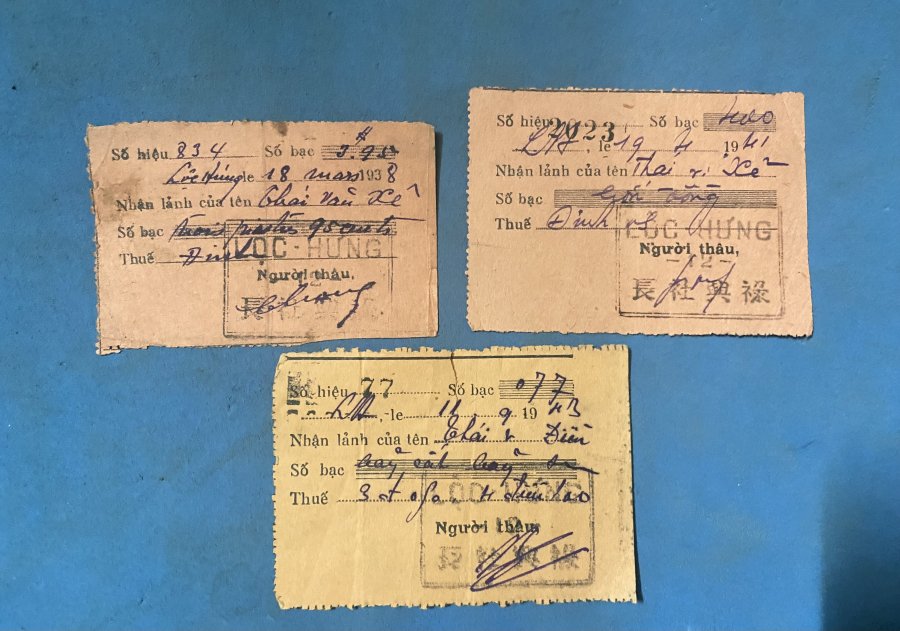 Số hiệu 834 Số bạc $ 3.95
Lộc Hưng le 18 mars 1938
Nhận lãnh của tên Thái Văn Xê
Số bạc trois piastres 95 cents
Thuế Đinh
LỘC-HƯNG
Người thâu,
-12-
長社興祿
Số hiệu 2023 Số bạc
, le 19 4 1941
Nhận lãnh của tên Thái v. Xê
Số bạc
Thuế Đinh
LỘC HƯNG
Người thâu,
-12-
長社興祿
Số hiệu 77 Số bạc 077
LH, le 11 9 1943
Nhận lãnh của tên Thái v Điền
Số bạc bảy cắt bảy xu
Thuế
LỘC HƯNG
Người thâu,
-12-
長社興祿